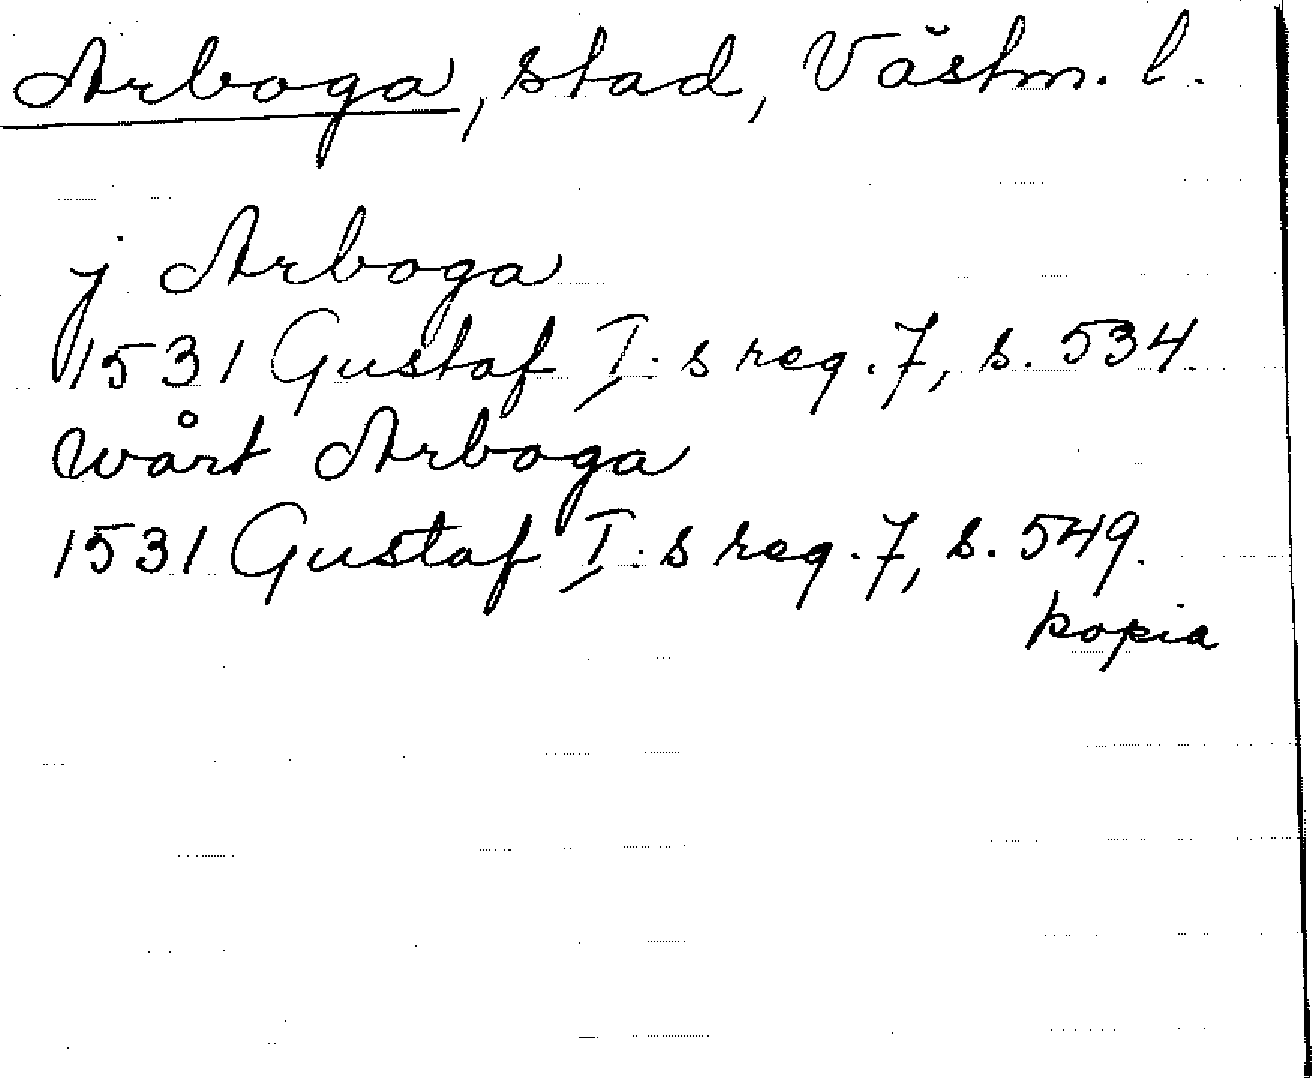 Arboga, stad, Västm. l.
j Arboga
1531 Gustaf I:s reg. 7, s. 534.
wårt Arboga
1531 Gustaf I:s reg. 7, s. 549.
kopia